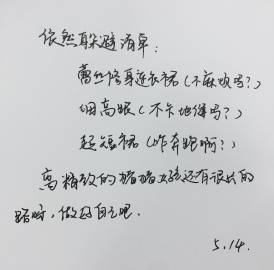 依然躲避清单：
蕾丝修身连衣裙（不麻烦吗？）
细高跟（不卡地缝吗？）
超短裙（咋奔跑啊？）
离精致的猪猪女孩还有很长的
路呀，做好自己吧．
5.14.